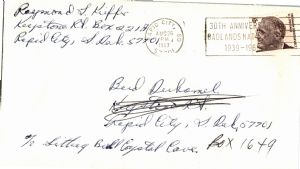 Raymond L Kiffe
Keystone Rt. Box 221A
Rapid City, S. Dak. 57701
RAPID CITY, SD
AUG 26
PM
30TH ANNIVE
BADLANDS NA
1939-196
Bud Duhamel
Keystone Rt.
Rapid City, S. Dak. 57701
c/o Sitting Bull Crystal Cave. Box 1649